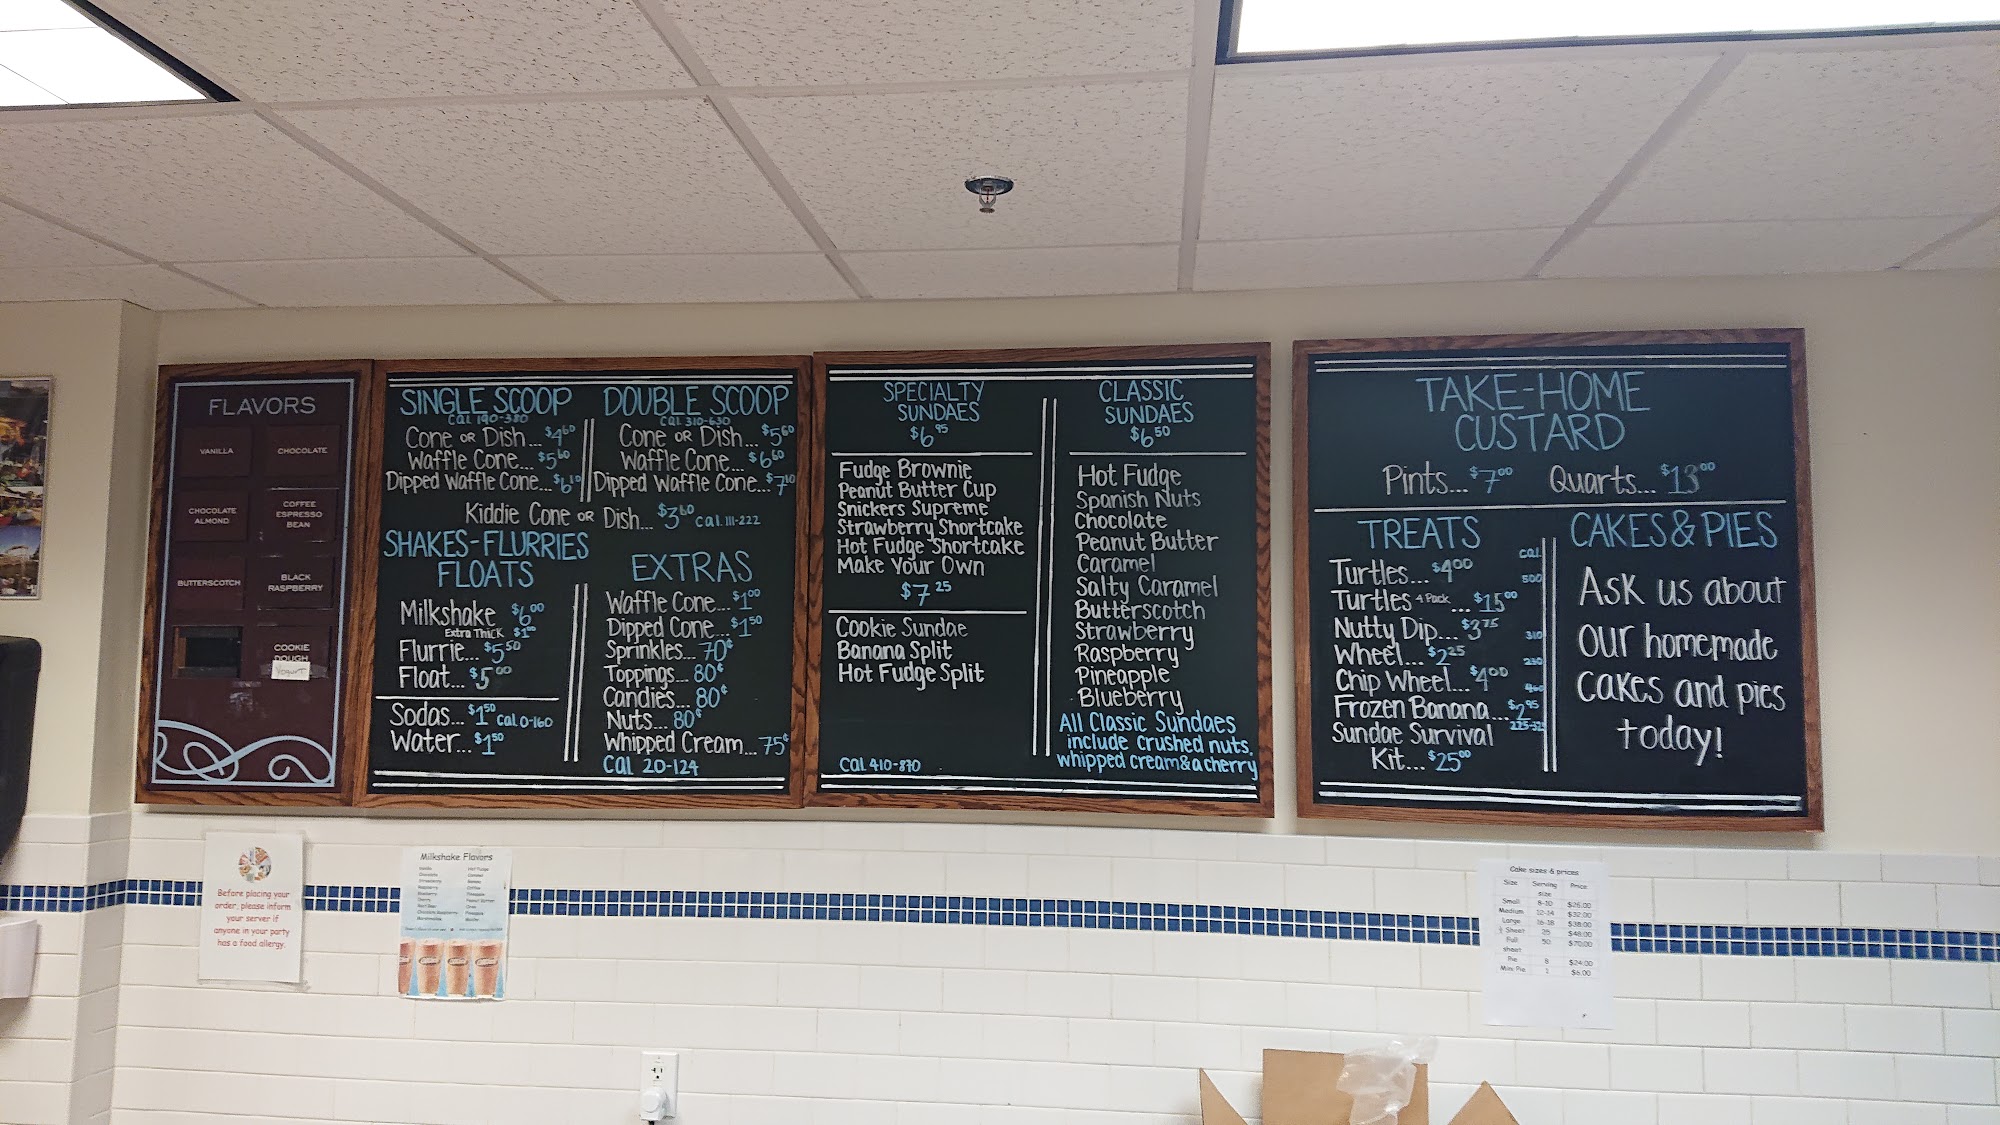 FLAVORS
VANILLA
CHOCOLATE
CHOCOLATE
ALMOND
COFFEE
ESPRESSO
BEAN
BUTTERSCOTCH
BLACK
RASPBERRY
COOKIE
DOUGH
Yogurt
SINGLE SCOOP
Cal 190-380
Cone or Dish... $4.60
Waffle Cone... $5.60
Dipped Waffle Cone... $6.10
DOUBLE SCOOP
Cal 310-630
Cone or Dish... $5.60
Waffle Cone... $6.60
Dipped Waffle Cone... $7.10
Kiddie Cone or Dish... $3.60 cal. 111-222
SHAKES-FLURRIES
FLOATS
Milkshake $6.00
Extra Thick $1.00
Flurrie... $5.50
Float... $5.00
Sodas... $1.50 cal 0-160
Water... $1.50
EXTRAS
Waffle Cone... $1.00
Dipped Cone... $1.50
Sprinkles... 70¢
Toppings... 80¢
Candies... 80¢
Nuts... 80¢
Whipped Cream... 75¢
Cal 20-124
SPECIALTY
SUNDAES
$6.95
Fudge Brownie
Peanut Butter Cup
Snickers Supreme
Strawberry Shortcake
Hot Fudge Shortcake
Make Your Own
$7.25
Cookie Sundae
Banana Split
Hot Fudge Split
Cal 410-870
CLASSIC
SUNDAES
$6.50
Hot Fudge
Spanish Nuts
Chocolate
Peanut Butter
Caramel
Salty Caramel
Butterscotch
Strawberry
Raspberry
Pineapple
Blueberry
All Classic Sundaes
include crushed nuts,
whipped cream & a cherry
TAKE-HOME
CUSTARD
Pints... $7.00 Quarts... $13.00
TREATS
cal
Turtles... $4.00 500
Turtles 4 Pack ... $15.00
Nutty Dip... $3.75 310
Wheel... $2.25 230
Chip Wheel... $4.00 460
Frozen Banana... $2.95
Sundae Survival
Kit... $25.00
CAKES & PIES
Ask us about
our homemade
cakes and pies
today!
Before placing your
order, please inform
your server if
anyone in your party
has a food allergy.
Milkshake Flavors
Cake sizes & prices
Size Serving size Price
Small 8-10 $26.00
Medium 12-14 $32.00
Large 16-18 $38.00
½ Sheet 25 $48.00
Full sheet 50 $70.00
Pie 8 $24.00
Mini Pie 1 $6.00